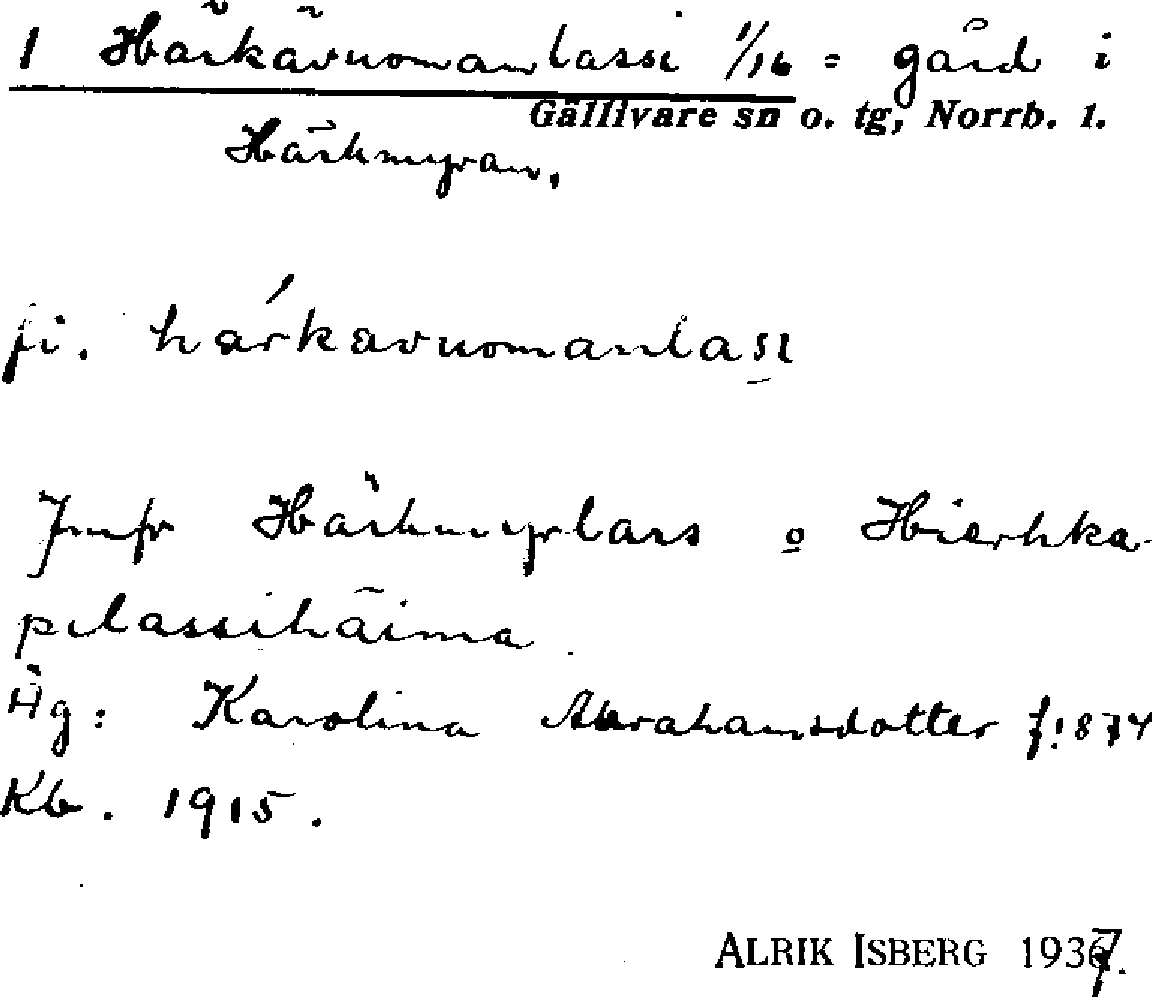 1 Härkävuomanlassi 1/16 = gård i
Gällivare sn o. tg, Norrb. l.
Härkmyran.
fi. hárkavuomanlasi
Jmfr Härkmyrlars o Hierhka-
pilassihäima.
Äg: Karolina Abrahamsdotter f. 1874
Kb. 1915.
ALRIK ISBERG 1937.